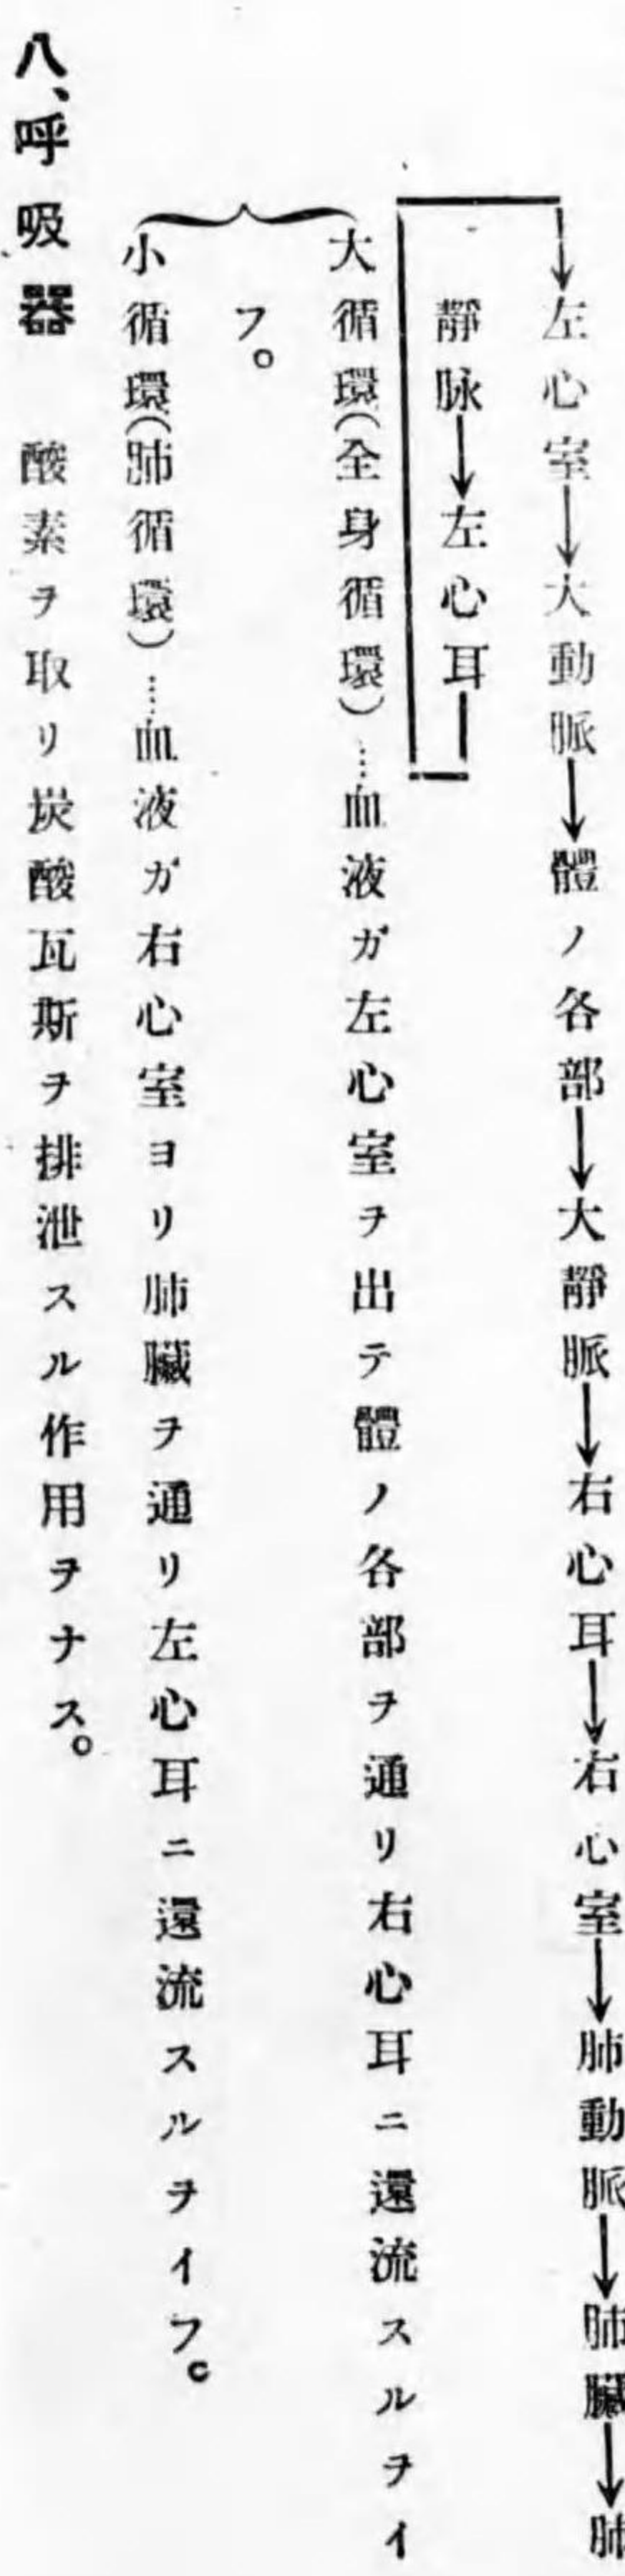 左心室→大動脈→體ノ各部→大靜脈→右心耳→右心室→肺動脈→肺臟→肺
靜脉→左心耳
大循環(全身循環)……血液ガ左心室ヲ出テ體ノ各部ヲ通リ右心耳ニ還流スルヲイ
フ。
小循環(肺循環)……血液ガ右心室ヨリ肺臟ヲ通リ左心耳ニ還流スルヲイフ。
八、呼吸器　酸素ヲ取リ炭酸瓦斯ヲ排泄スル作用ヲナス。